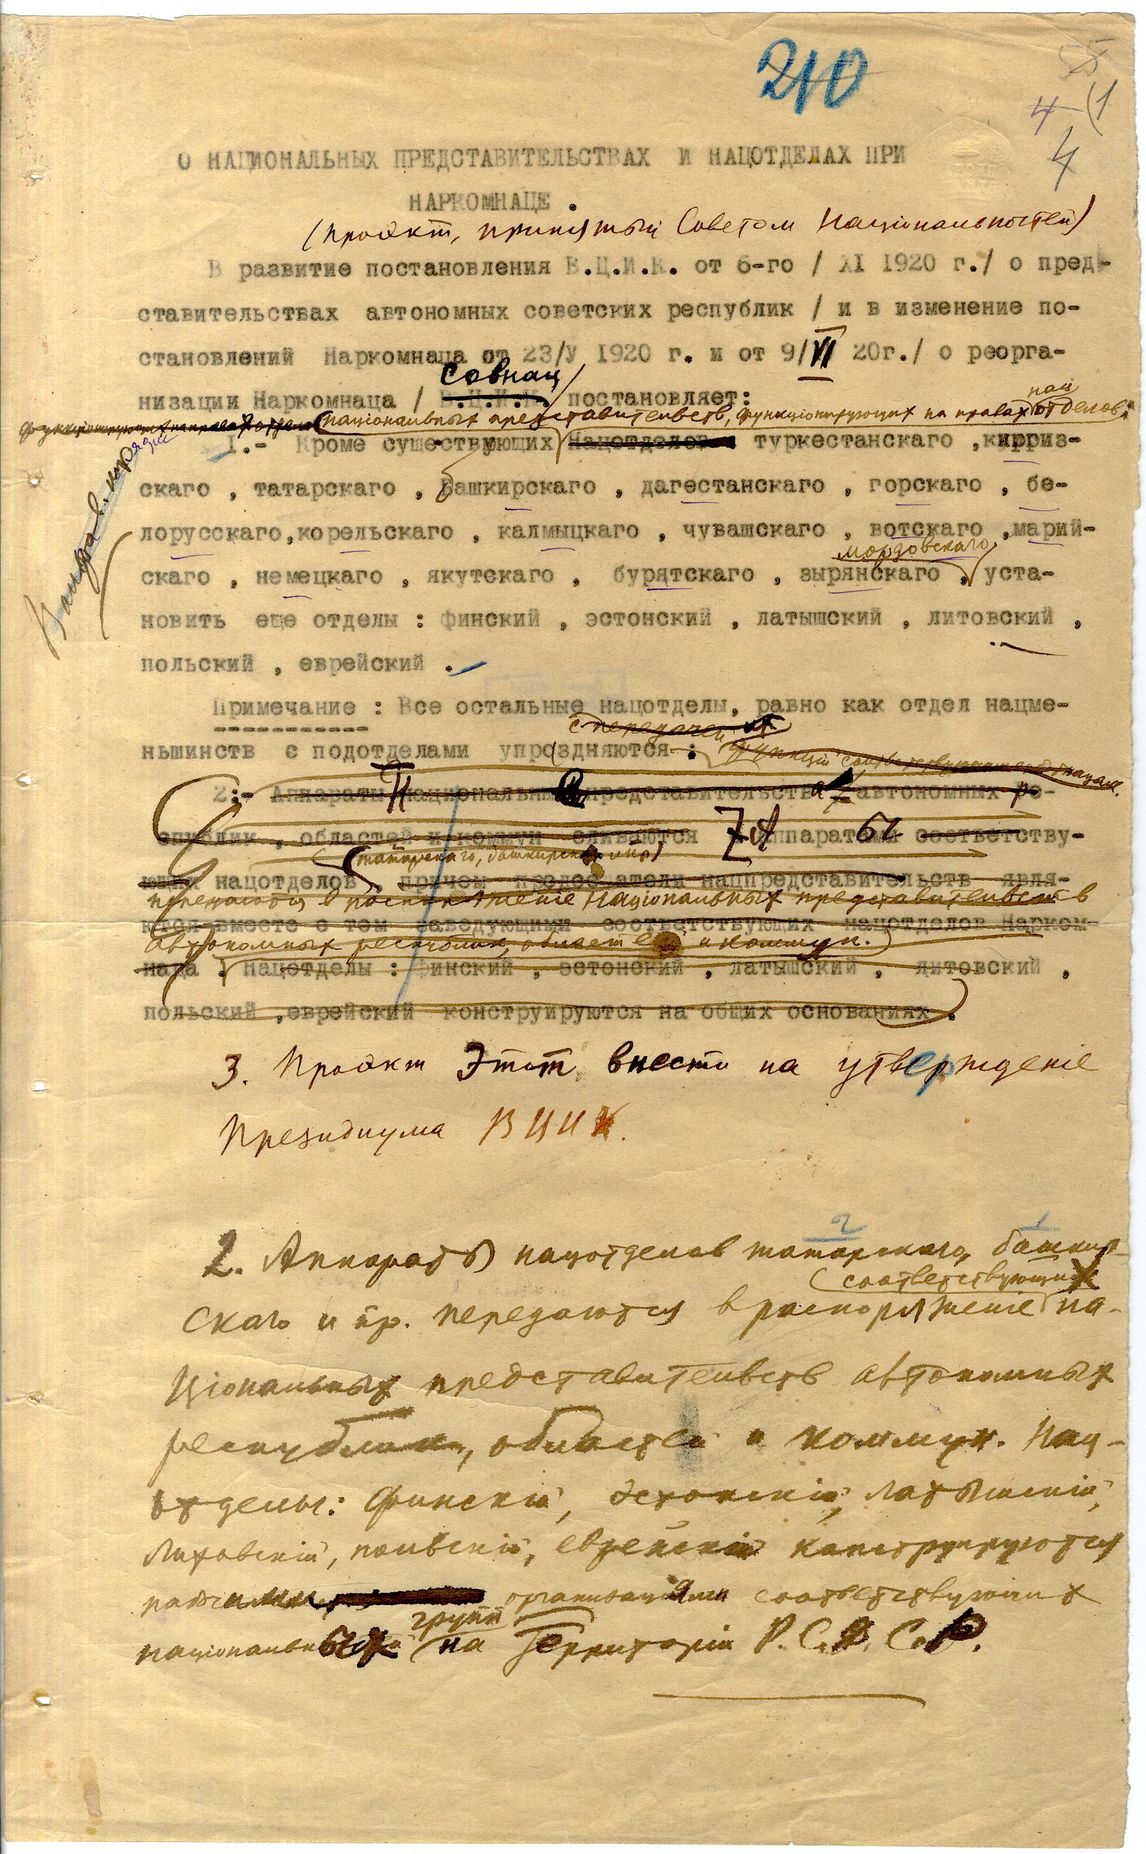 210
55
4 (1
4
О НАЦИОНАЛЬНЫХ ПРЕДСТАВИТЕЛЬСТВАХ И НАЦОТДЕЛАХ ПРИ
НАРКОМНАЦЕ .
(Проэкт, принятый Советом Національностей)
В развитие постановления В.Ц.И.К. от 6-го / XI 1920 г./ о пред-
ставительствах автономных советских республик / и в изменение по-
становлений Наркомнаца от 23/У 1920 г. и от 9/VI 20г./ о реорга-
Совнац
низации Наркомнаца / В.Ц.И.К. постановляет:
нац
національных представительств, функціонирующих на правах отделов:
I.- Кроме существующих Нацотделов туркестанского ,кирриз-
скаго , татарскаго , башкирскаго , дагестанскаго , горскаго , бе-
лорусскаго,корельскаго , калмыцкаго , чувашскаго , вотскаго ,марий-
мордовскаго
скаго , немецкаго , якутскаго , бурятскаго , зырянскаго , уста-
новить еще отделы : финский , эстонский , латышский , литовский ,
польский , еврейский .
Примечание : Все остальные нацотделы, равно как отдел нацме-
с передачей их
ньшинств с подотделами упраздняются :
функций
2:- Аппараты национальных представительств автономных ре-
спублик , областей и коммун сливаются с аппаратами соответству-
(татарскаго, башкирскаго и пр)
ющих нацотделов , причем председатели нацпредставительств явля-
передаются в распоряженіе національных представительств
ются вместе с тем заведующими соответствующих нацотделов Нарком-
автономных республик, областей и коммун.
наца . Нацотделы : финский , эстонский , латышский , литовский ,
польский ,еврейский конструируются на общих основаниях .
3. Проэкт этот внести на утвержденіе
Президиума ВЦИК.
2 1
2. Аппараты нацотделов татарскаго, башкир-
(соответствующих
скаго и пр. передаются в распоряженіе на-
ціональных представительств автономных
республик, областей и коммун. Нац-
отделы: финскій, эстонскій, латышскій,
литовскій, польскій, еврейскій конструируются
организаціями соответствующих
групп
національных на территоріи Р.С.Ф.С.Р.